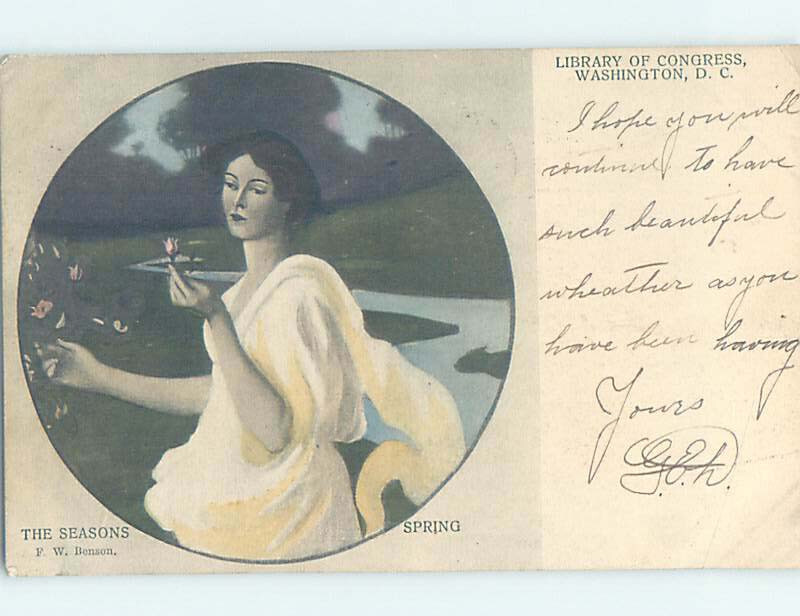 LIBRARY OF CONGRESS,
WASHINGTON, D. C.
I hope you will
continue to have
such beautiful
wheather as you
have been having
Yours
G.E.h.
THE SEASONS
F. W. Benson.
SPRING